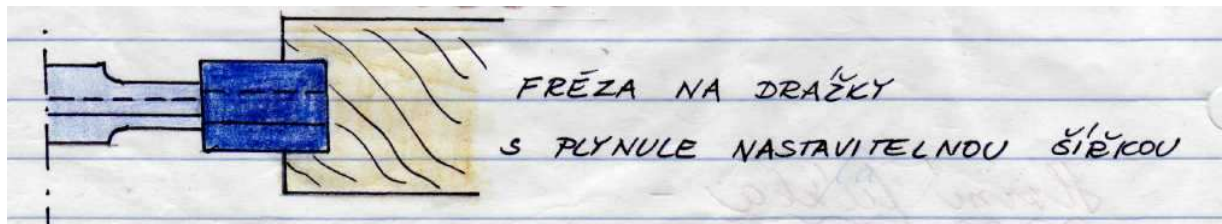 FRÉZA NA DRÁŽKY
S PLYNULE NASTAVITELNOU ŠÍŘKOU